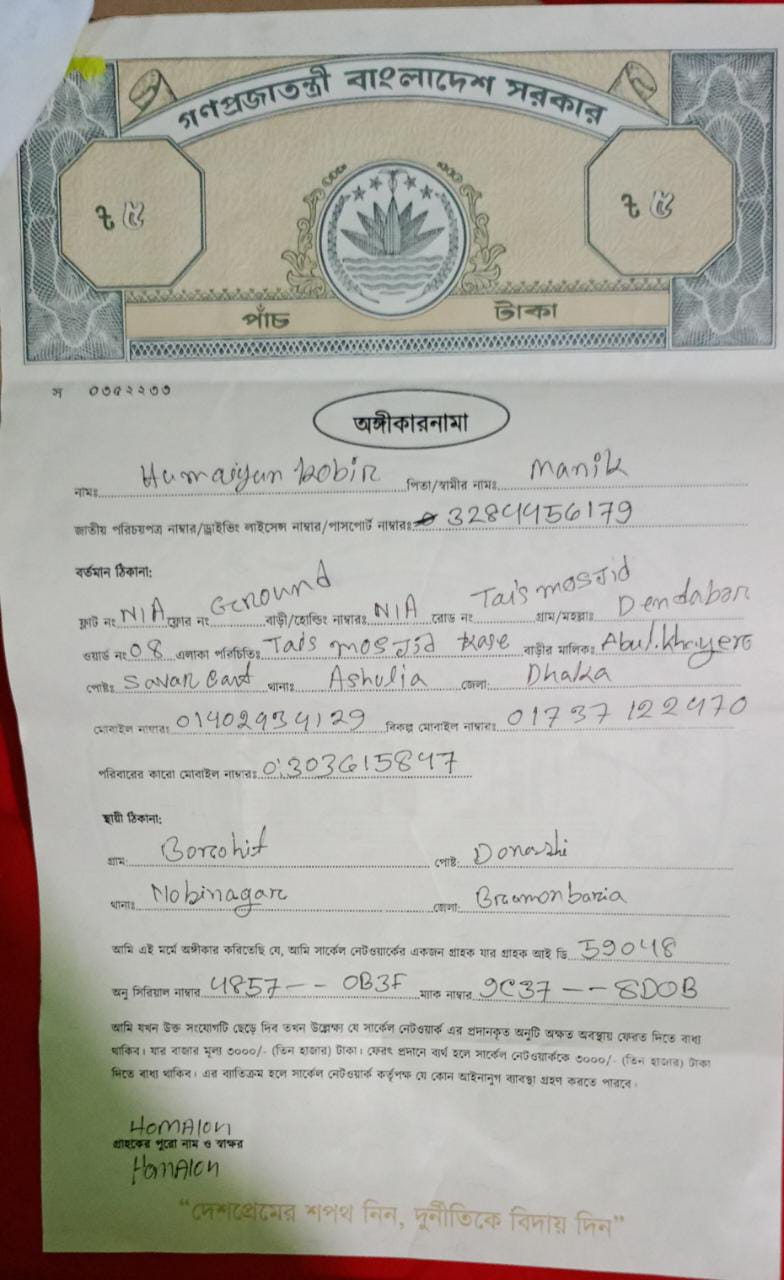 গণপ্রজাতন্ত্রী বাংলাদেশ সরকার
৳ ৫ ৳ ৫
পাঁচ টাকা
স ০৩৫২২৩৩
অঙ্গীকারনামা
নামঃ Humaiyun kobir পিতা/স্বামীর নামঃ Manik
জাতীয় পরিচয়পত্র নাম্বার/ড্রাইভিং লাইসেন্স নাম্বার/পাসপোর্ট নাম্বারঃ 3284456179
বর্তমান ঠিকানা:
ফ্লাট নং N/A ফ্লোর নং Ground বাড়ী/হোল্ডিং নাম্বারঃ N/A রোড নং Tais mosjid গ্রাম/মহল্লাঃ Dendabor
ওয়ার্ড নং 08 এলাকা পরিচিতিঃ Tais mosjid বাড়ীর মালিকঃ Abul.khayer
পোষ্টঃ Savar Cant থানাঃ Ashulia জেলা: Dhaka
মোবাইল নাম্বারঃ 01402934129 বিকল্প মোবাইল নাম্বারঃ 01737122470
পরিবারের কারো মোবাইল নাম্বারঃ 01303615847
স্থায়ী ঠিকানা:
গ্রাম: Borohit পোষ্ট: Donashi
থানাঃ Nobinagar জেলা: Bramonbaria
আমি এই মর্মে অঙ্গীকার করিতেছি যে, আমি সার্কেল নেটওয়ার্কের একজন গ্রাহক যার গ্রাহক আই ডি 59048
অনু সিরিয়াল নাম্বার 4857-- 0B3F ম্যাক নাম্বার 9C37--8D0B
আমি যখন উক্ত সংযোগটি ছেড়ে দিব তখন উল্লেক্ষা যে সার্কেল নেটওয়ার্ক এর প্রদানকৃত অনুটি অক্ষত অবস্থায় ফেরত দিতে বাধ্য
থাকিব। যার বাজার মূল্য ৩০০০/- (তিন হাজার) টাকা। ফেরৎ প্রদানে ব্যর্থ হলে সার্কেল নেটওয়ার্ককে ৩০০০/- (তিন হাজার) টাকা
দিতে বাধ্য থাকিব। এর ব্যতিক্রম হলে সার্কেল নেটওয়ার্ক কর্তৃপক্ষ যে কোন আইনানুগ ব্যাবস্থা গ্রহণ করতে পারবে।
HOMAION
গ্রাহকের পুরো নাম ও স্বাক্ষর
HOMAION
“দেশপ্রেমের শপথ নিন, দুর্নীতিকে বিদায় দিন”